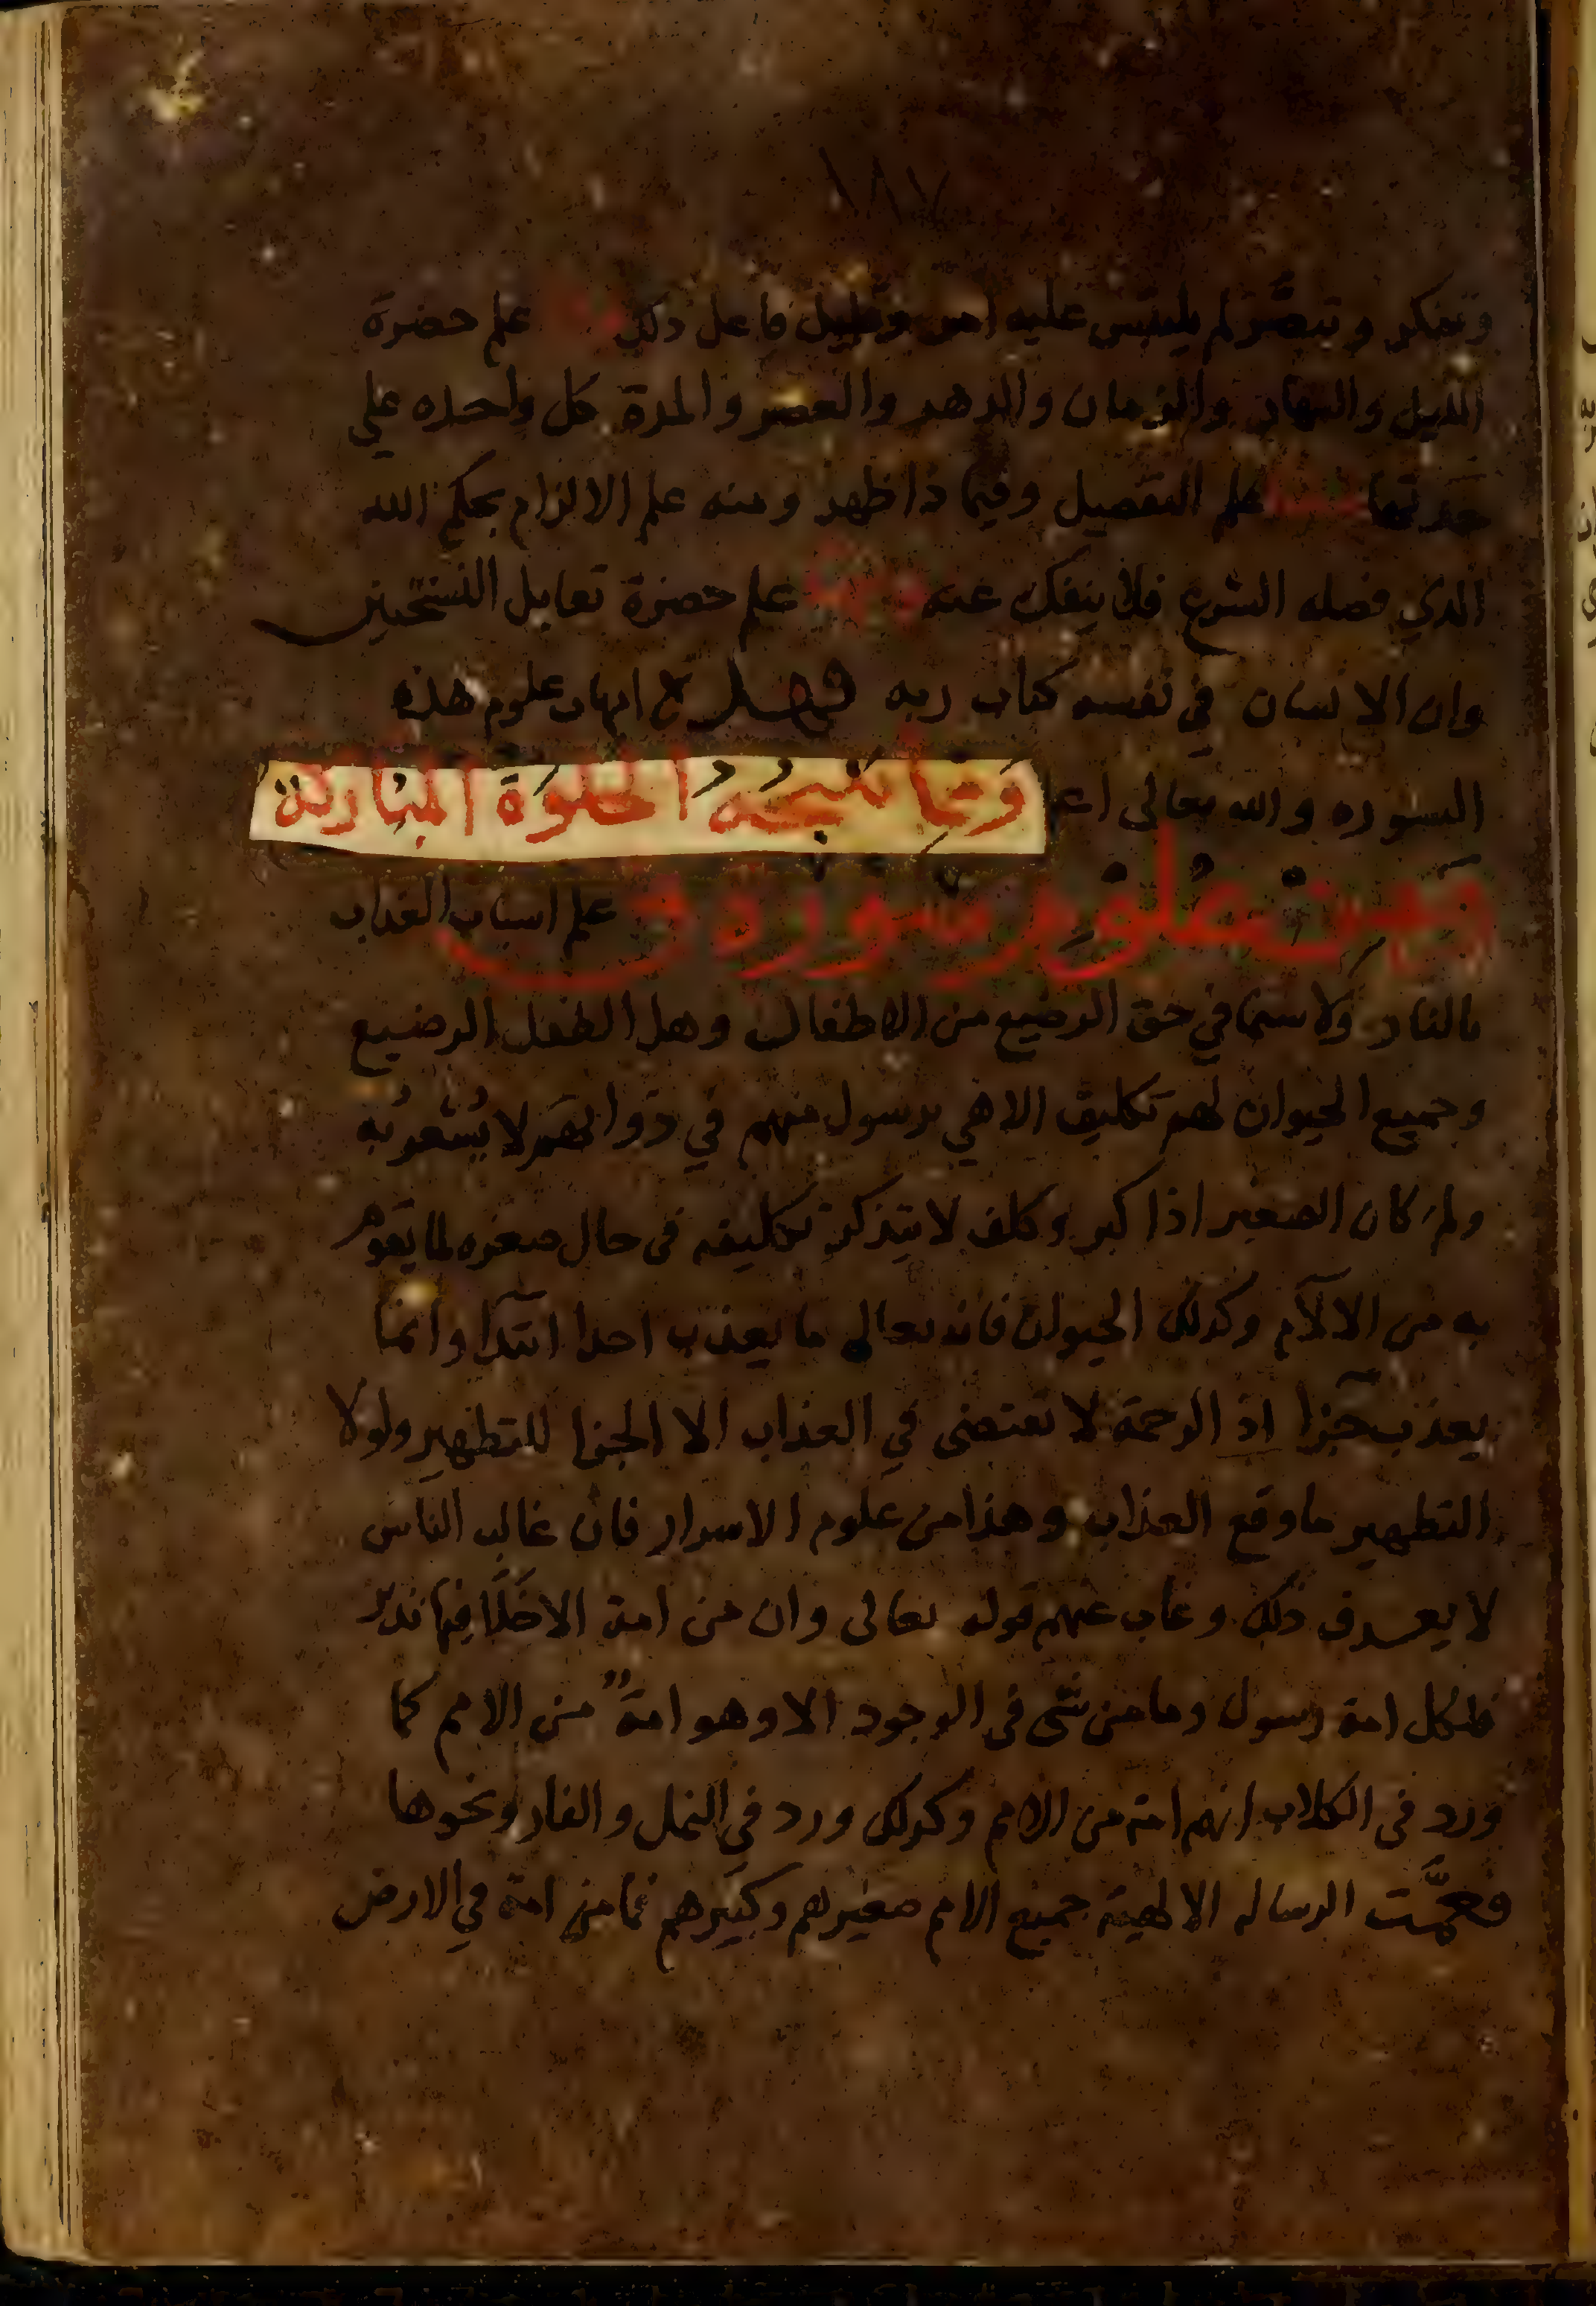 ١٨٧
وتفكر وتبصَّر لم يلتبس عليه امر وقليل فاعل ذلك علم حضرة
الليل والنهار والزمان والدهر والعصر والمدة كل واحده على
حدتها علم التفصيل وفيما ذا ظهر ومنه علم الالزام بحكم الله
الذي فصله الشرع فلا ينفك عنه علم حضرة تقابل النسختين
وان الانسان في نفسه كتاب ربه فهذه امهات علوم هذه
السوره والله تعالى اعلم ومما نتيجه الخلوة المباركة
من علوم سورة ق علم اسباب العذاب
بالنار ولا سيما في حق الرضيع من الاطفال وهل الطفل الرضيع
وجميع الحيوان لهم تكليف الاهي برسول منهم في ذواتهم لا يُشعرُ به
ولم كان الصغير اذا كبر وكلف لا يتذكر تكليفه في حال صغره لما يقوم
به من الالآم وكذلك الحيوان فانه تعالى ما يعذب احدا ابتدآ وانما
يعذب جزآ اذ الرحمة لا تقتضى في العذاب الا الجزا للتطهير ولولا
التطهير ما وقع العذاب وهذا من علوم الاسرار فان غالب الناس
لا يعرف ذلك وغاب عنهم قوله تعالى وان من امة الا خلا فيها نذير
فلكل امة رسول وما من شى فى الوجود الا وهو امة من الامم كما
ورد فى الكلاب انهم امة من الامم وكذلك ورد في النمل والفار ونحوها
فعمَّت الرساله الالهية جميع الامم صغيرهم وكبيرهم فما من امة في الارض